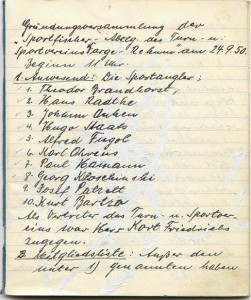 Gründungsversammlung der
Sportfischer-Abtlg. des Turn- u.
Sportvereins Farge-Rekum am 24.9.50.
Beginn 11 Uhr.
1. Anwesend: Die Sportangler;
1. Theodor Brandhorst,
2. Hans Radtke
3. Johann Onken
4. Hugo Staats
5. Alfred
6. Karl Ahrens
7. Paul Hamann
8. Georg Kloschinski
9. Josef Patzelt
10. Kurt Bartza
Als Vertreter des Turn- u. Sportver-
eins war Herr Kurt Friedrichs
zugegen.
2. Mitgliedsliste: Außer den
unter 1) genannten haben